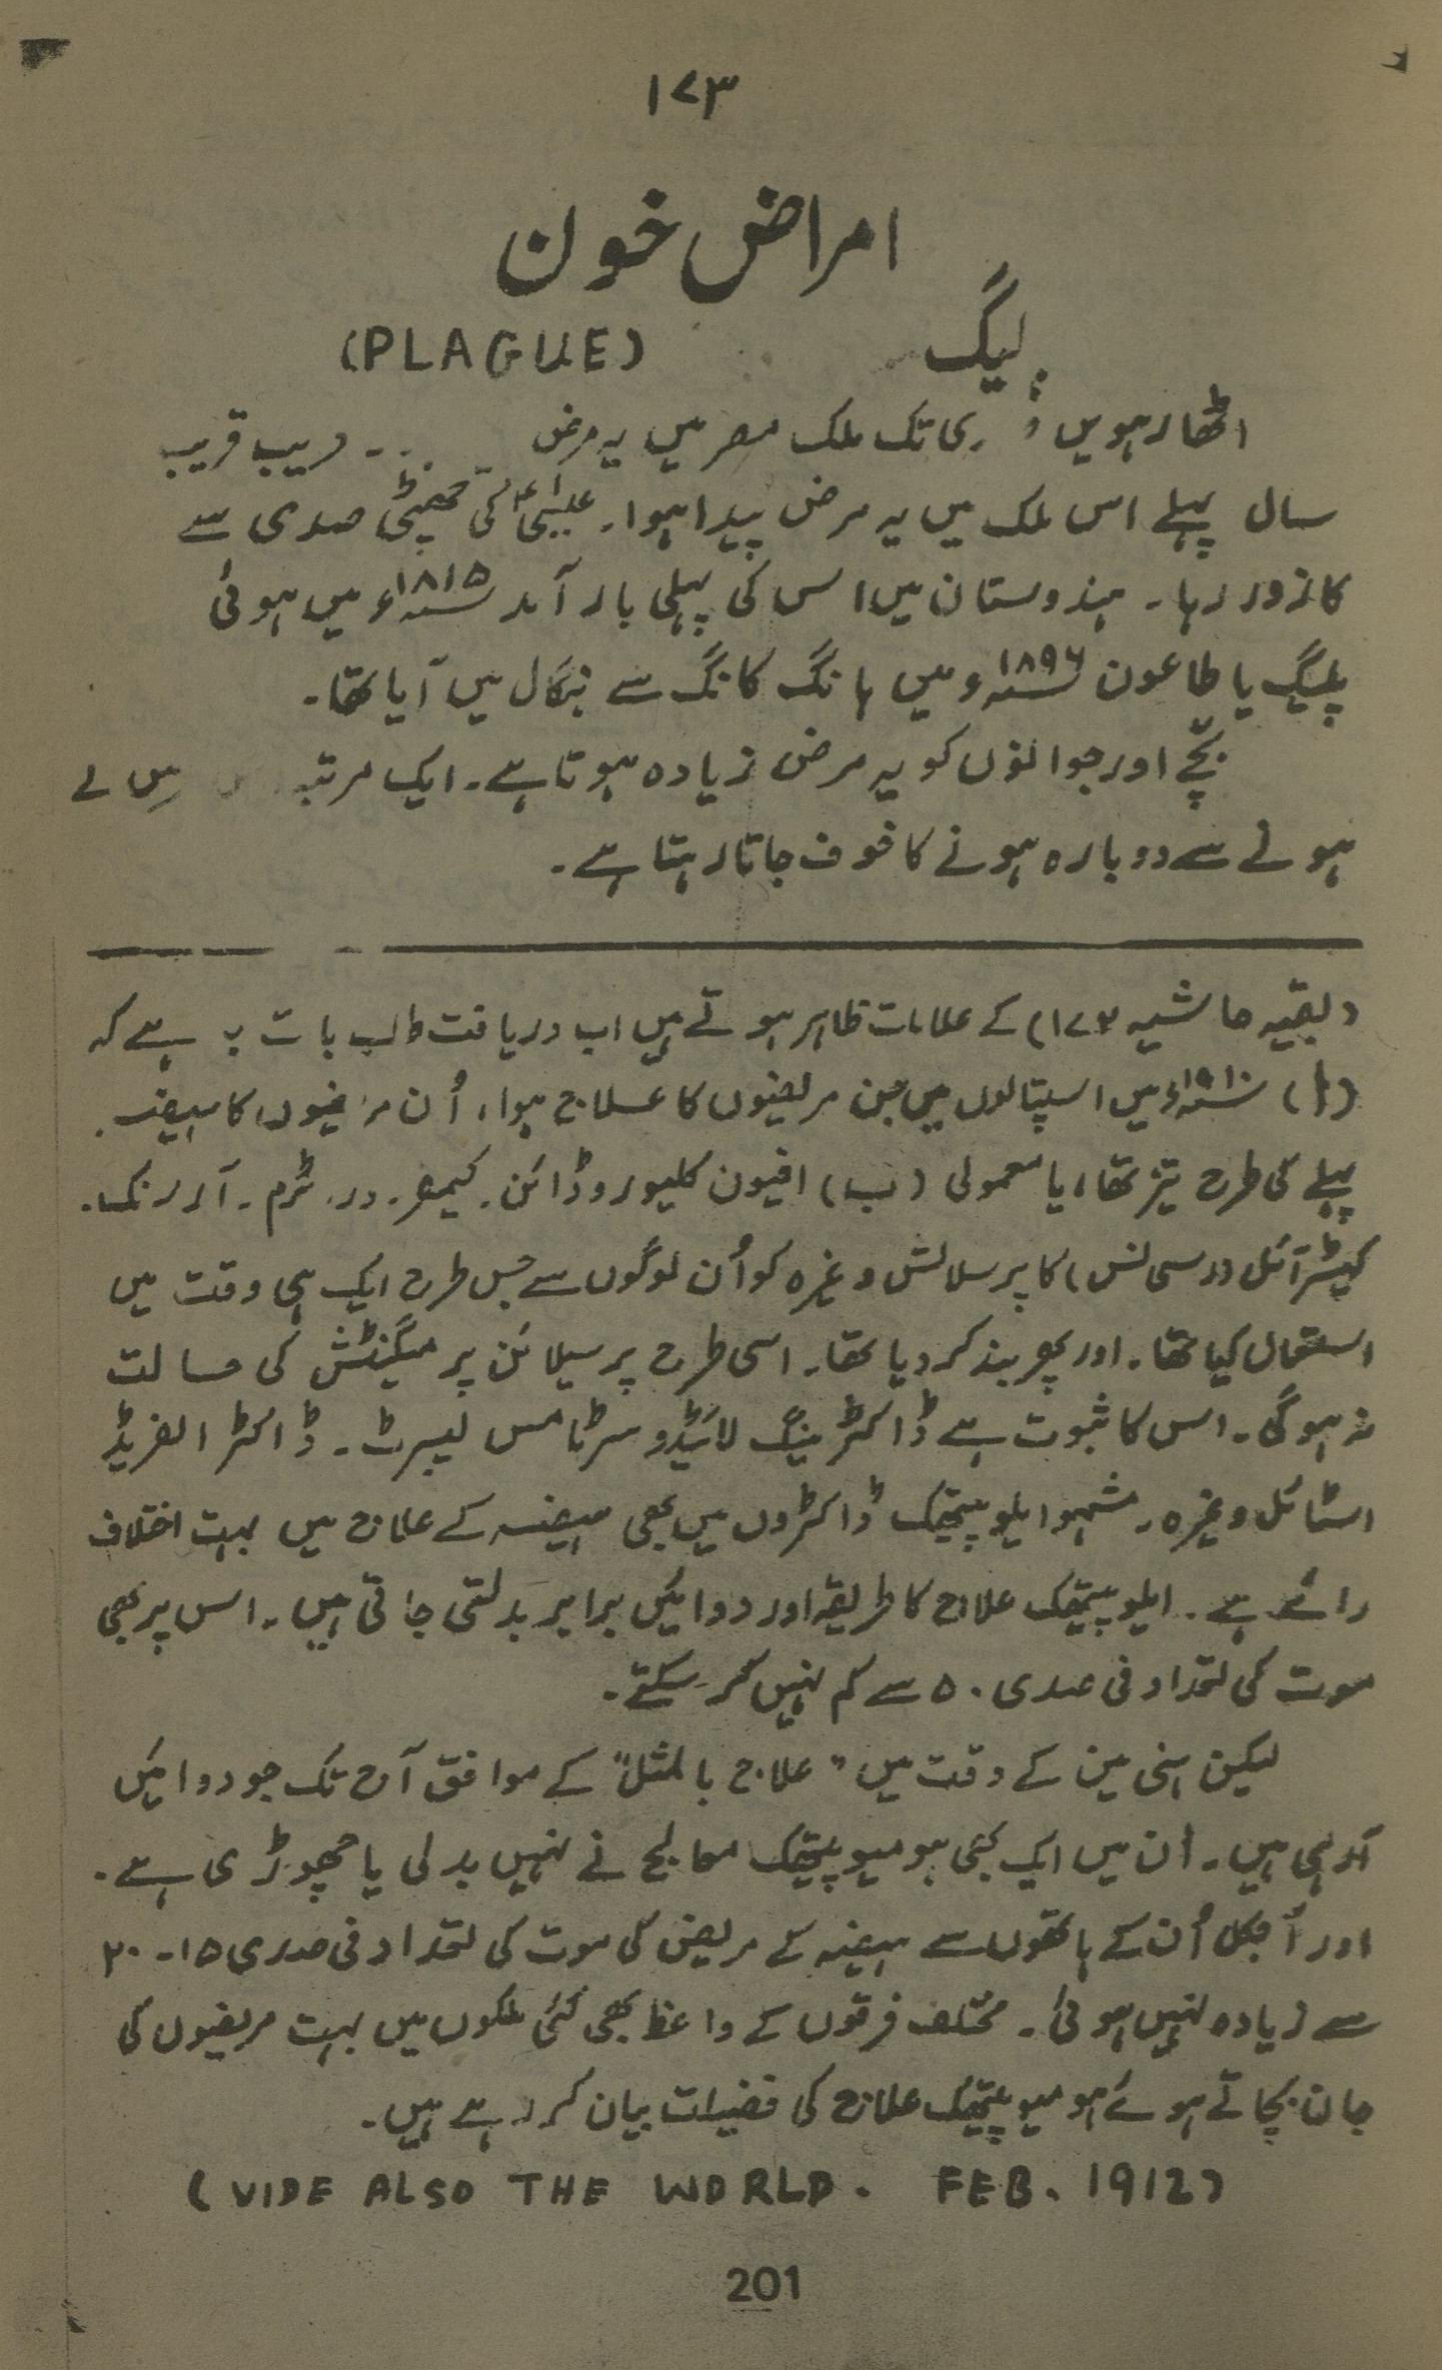 ۱۷۳
امراض خون
پلیگ (PLAGUE)
اٹھارہویں ری تک ملک مصر میں یہ مرض قریب
سال پہلے اس ملک میں یہ مرض پیدا ہوا۔ عیسیٰؑ کی چھٹی صدی سے
کا زور رہا۔ ہندوستان میں اس کی پہلی بار آمد ۱۸۱۵ء میں ہوئی
پلیگ یا طاعون ۱۸۹۶ء میں ہانگ کانگ سے بنگال میں آیا تھا۔
بچے اور جوانوں کو یہ مرض زیادہ ہوتا ہے۔ ایک مرتبہ
ہونے سے دوبارہ ہونے کا خوف جاتا رہتا ہے۔
(بقیہ حاشیہ ۱۷۲) کے علامات ظاہر ہوتے ہیں اب دریافت طلب بات یہ ہے کہ
(ا) ۱۹۱۰ء میں اسپتالوں میں جن مریضوں کا علاج ہوا، اُن مریضوں کا ہیضہ
پہلے کی طرح تیز تھا، یا معمولی (ب) افیون کلیوروڈائن۔ کیمفر۔
کیسٹر آئل کا پرسلائش وغیرہ کو اُن لوگوں سے جس طرح ایک ہی وقت میں
استعمال کیا تھا۔ اور پھر بند کر دیا تھا۔ اسی طرح پرسیلائن پر میگنٹش کی حالت
نہ ہوگی۔ اس کا ثبوت ہے ڈاکٹر مینگ لائیڈو سرٹامس لیبرٹ۔ ڈاکٹر الفریڈ
اسٹائل وغیرہ۔ مشہو ایلوپیتھک ڈاکٹروں میں بھی ہیضہ کے علاج میں بہت اختلاف
رائے ہے۔ ایلوپیتھک علاج کا طریقہ اور دوائیں برابر بدلتی جاتی ہیں۔ اس پر بھی
موت کی تعداد فی صدی ۵۰ سے کم نہیں کر سکتے۔
لیکن ہنی مین کے وقت میں "علاج بالمثل" کے موافق آج تک جو دوائیں
آرہی ہیں۔ اُن میں ایک بھی ہومیوپیتھک معالج نے نہیں بدلی یا چھوڑی ہے۔
اور آجکل اُن کے ہاتھوں سے ہیضہ کے مریض کی موت کی تعداد فی صدی ۱۵۔۲۰
سے زیادہ نہیں ہوئی۔ مختلف فرقوں کے واعظ بھی کئی ملکوں میں بہت مریضوں کی
جان بچاتے ہوئے ہومیوپیتھک علاج کی فضیلت بیان کر رہے ہیں۔
(VIDE ALSO THE WORLD. FEB. 1912)
201